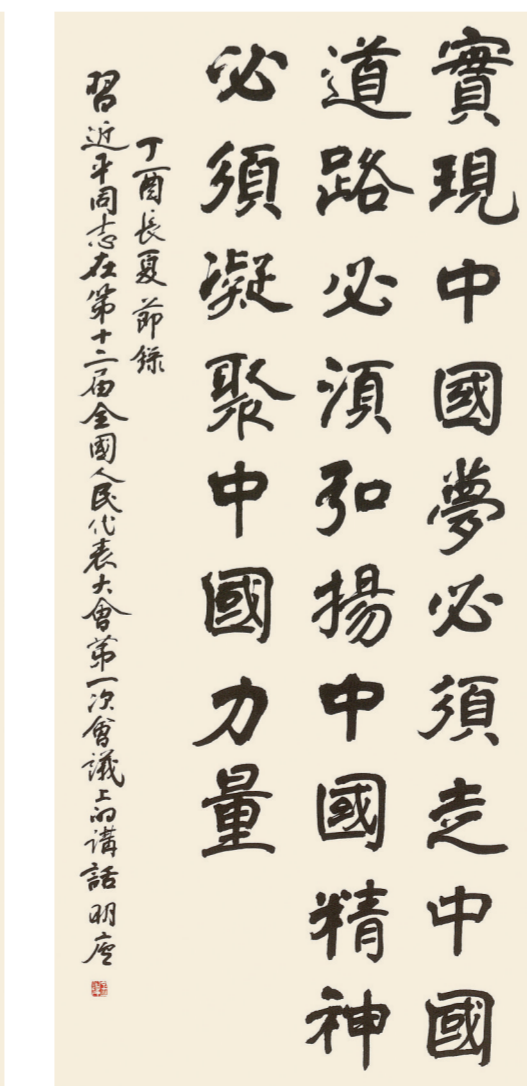 實現中國夢必須走中國
道路必須弘揚中國精神
必須凝聚中國力量
丁酉長夏節錄
習近平同志在第十二届全國人民代表大會第一次會議上的講話 明廬